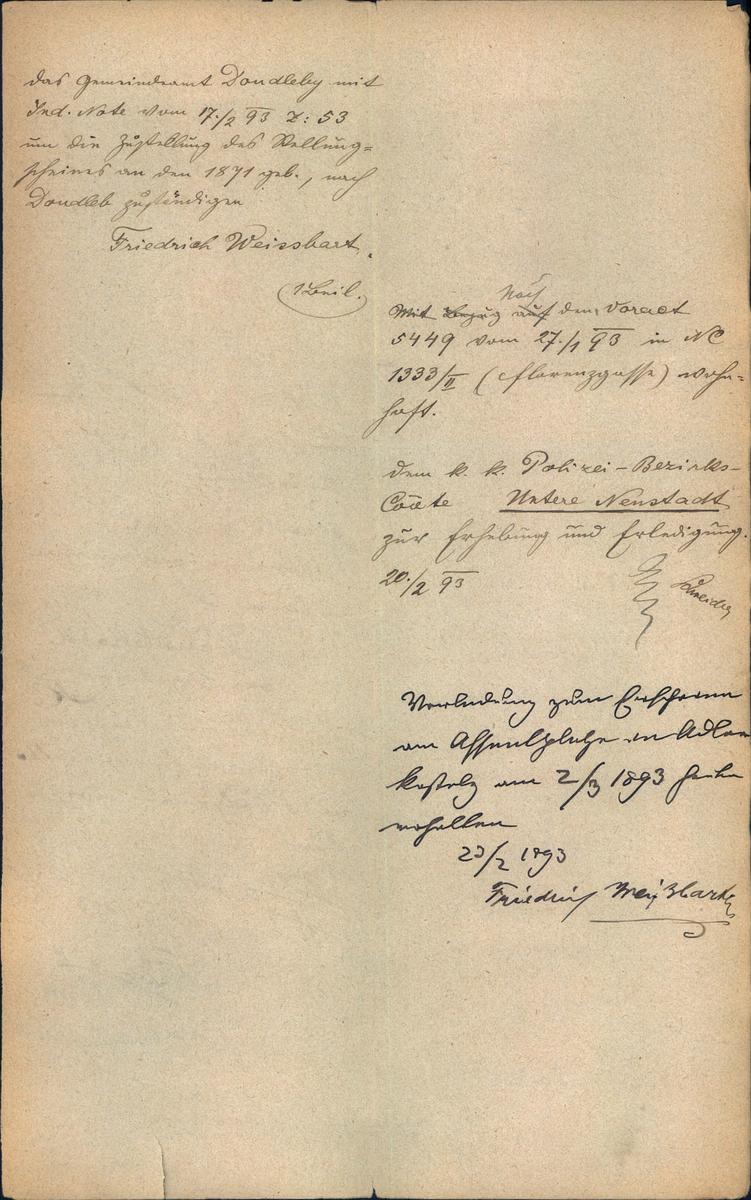 das Gemeindeamt Doudleby mit
Ind. Note vom 17./2 93 Z: 53
um die Zustellung des Stellung-
scheines an den 1871 geb., nach
Doudleb zuständigen
Friedrich Weissbart.
1 Beil.
Nach
Mit Bezug auf dem Voract
5449 vom 27./1 93 in NC
1333/II (Florenzgasse) wohn-
haft.
dem k. k. Polizei-Bezirks-
Coate Untere Neustadt
zur Erhebung und Erledigung.
20./2 93
Schneider
Vorladung zum Erscheinen
am Assentplatze in Adler
Kosteletz am 2/3 1893 heute
erhalten
23/2 1893
Friedrich Weißbart